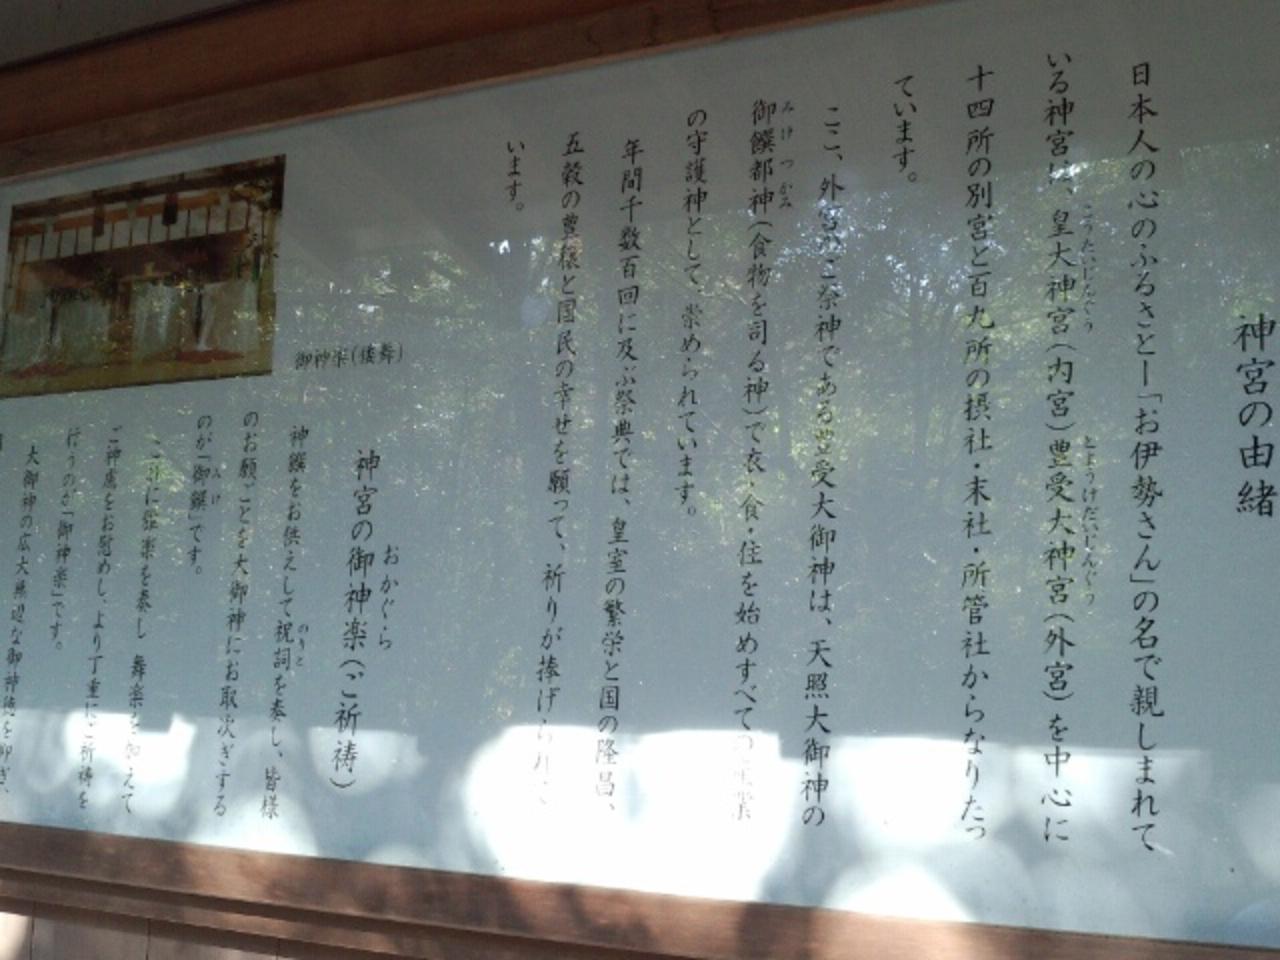 神宮の由緒
日本人の心のふるさと―「お伊勢さん」の名で親しまれて
いる神宮は、皇大神宮(内宮)豊受大神宮(外宮)を中心に
こうたいじんぐう
とようけだいじんぐう
十四所の別宮と百九所の摂社・末社・所管社からなりたっ
ています。
ここ、外宮のご祭神である豊受大御神は、天照大御神の
御饌都神(食物を司る神)で衣・食・住を始めすべての産業
みけつかみ
の守護神として、崇められています。
年間千数百回に及ぶ祭典では、皇室の繁栄と国の隆昌、
五穀の豊穣と国民の幸せを願って、祈りが捧げられて
います。
御神楽(倭舞)
おかぐら
神宮の御神楽(ご祈祷)
神饌をお供えして祝詞を奏し、皆様
のりと
のお願ごとを大御神にお取次ぎする
のが「御饌」です。
みけ
に雅楽を奏し舞楽を加えて
ご神慮をお慰めし、より丁重にご祈祷を
行うのが「御神楽」です。
大御神の広大無辺な御神徳を仰ぎ、